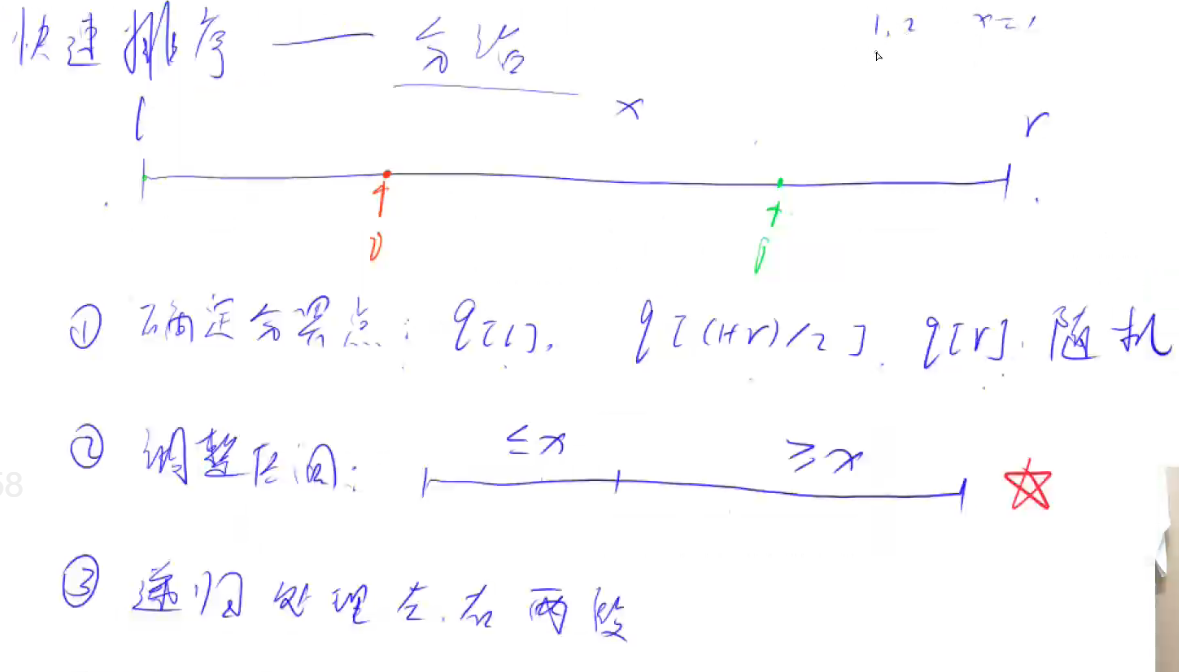 快速排序 —— 分治
1, 2 x=1
l x r
i j
① 确定分界点: q[l], q[(l+r)/2], q[r], 随机
② 调整区间: ≤x ≥x
③ 递归处理左、右两段